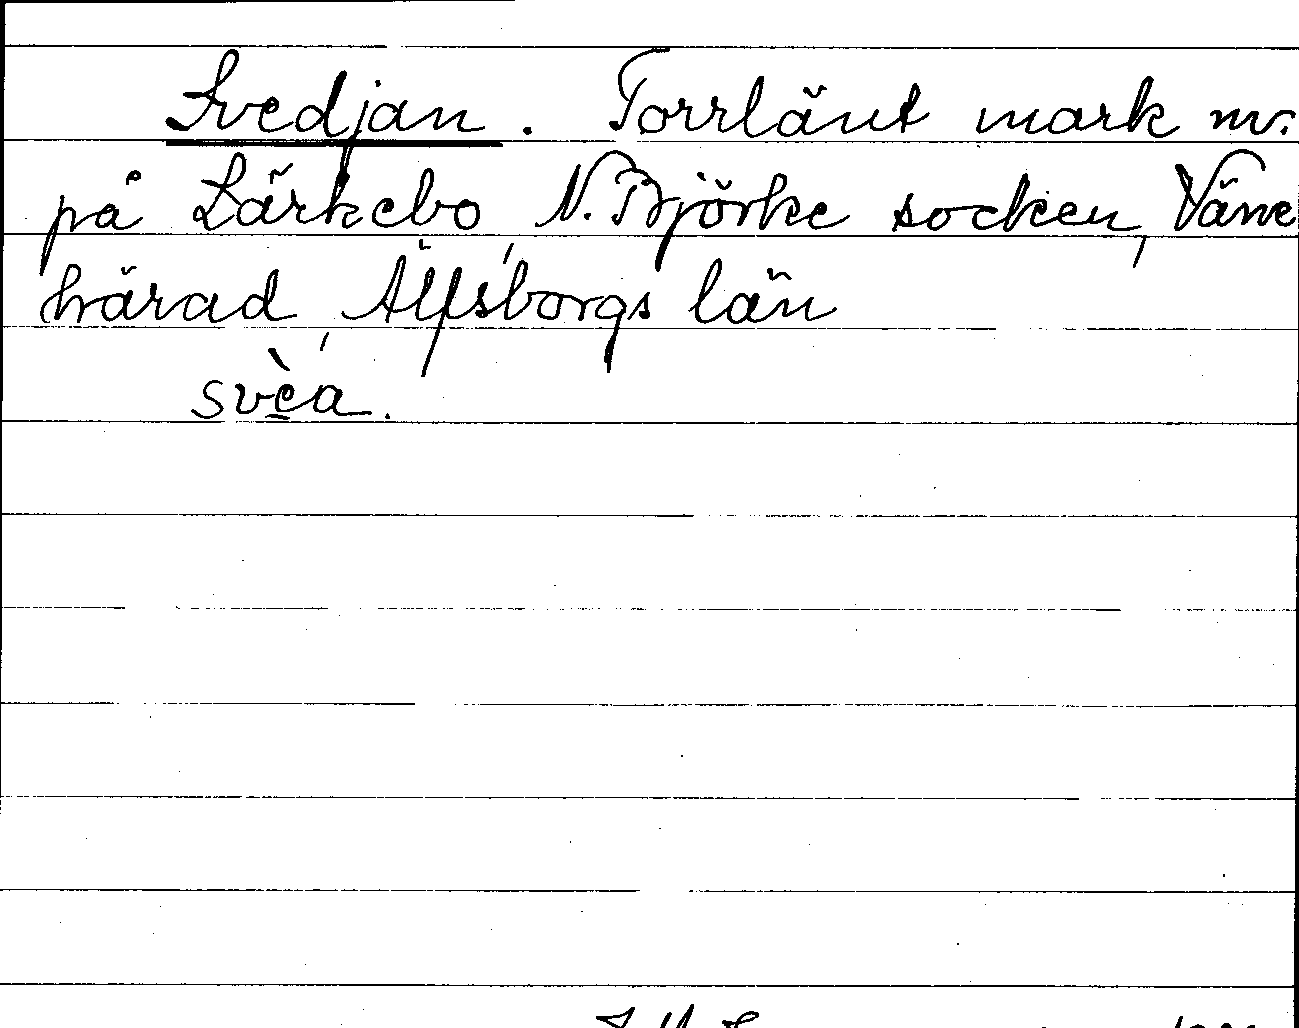 Svedjan. Torrlänt mark nv.
på Lärkebo, N. Björke socken, Väne
härad, Älfsborgs län
svèa.